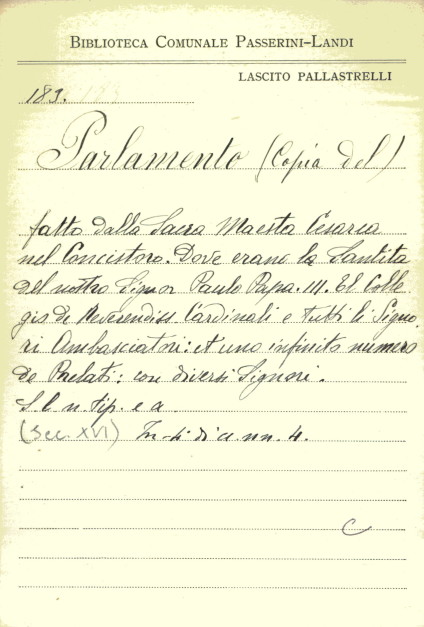 BIBLIOTECA COMUNALE PASSERINI-LANDI
LASCITO PALLASTRELLI
181.
Parlamento (Copia del)
fatto dalla Sacra Maesta Cesarea
nel Concistoro. Dove erano la Santita
del nostro Signor Paulo Papa. III. El Colle
gio de Reverendiss Cardinali e tutti li Signo
ri Ambasciatori: et uno infinito numero
de Prelati: con diversi Signori.
S. l. n. tip. e a
(Sec. XVI) In-4 di c. nn. 4.
C